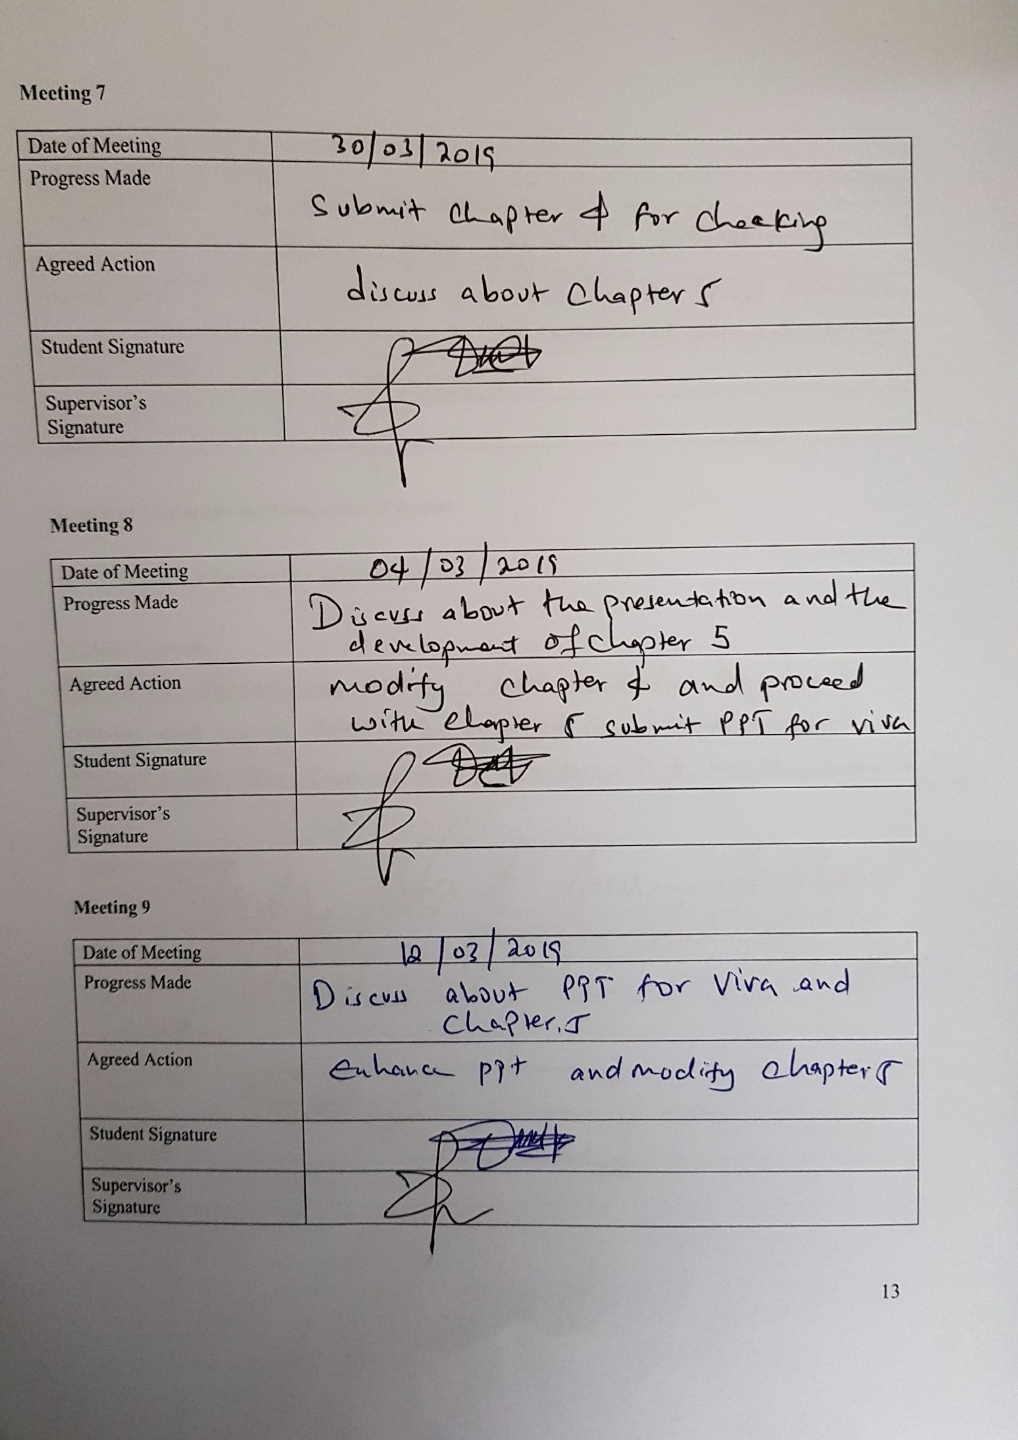 Meeting 7
Date of Meeting 30/03/2019
Progress Made
Submit chapter 4 for checking
Agreed Action
discuss about chapter 5
Student Signature
Supervisor's
Signature
Meeting 8
Date of Meeting 04/03/2019
Progress Made
Discuss about the presentation and the
development of chapter 5
Agreed Action
modify chapter 4 and proceed
with chapter 5 submit PPT for viva
Student Signature
Supervisor's
Signature
Meeting 9
Date of Meeting 12/03/2019
Progress Made
Discuss about PPT for Viva and
Chapter.5
Agreed Action
enhance ppt and modify chapter 5
Student Signature
Supervisor's
Signature
13